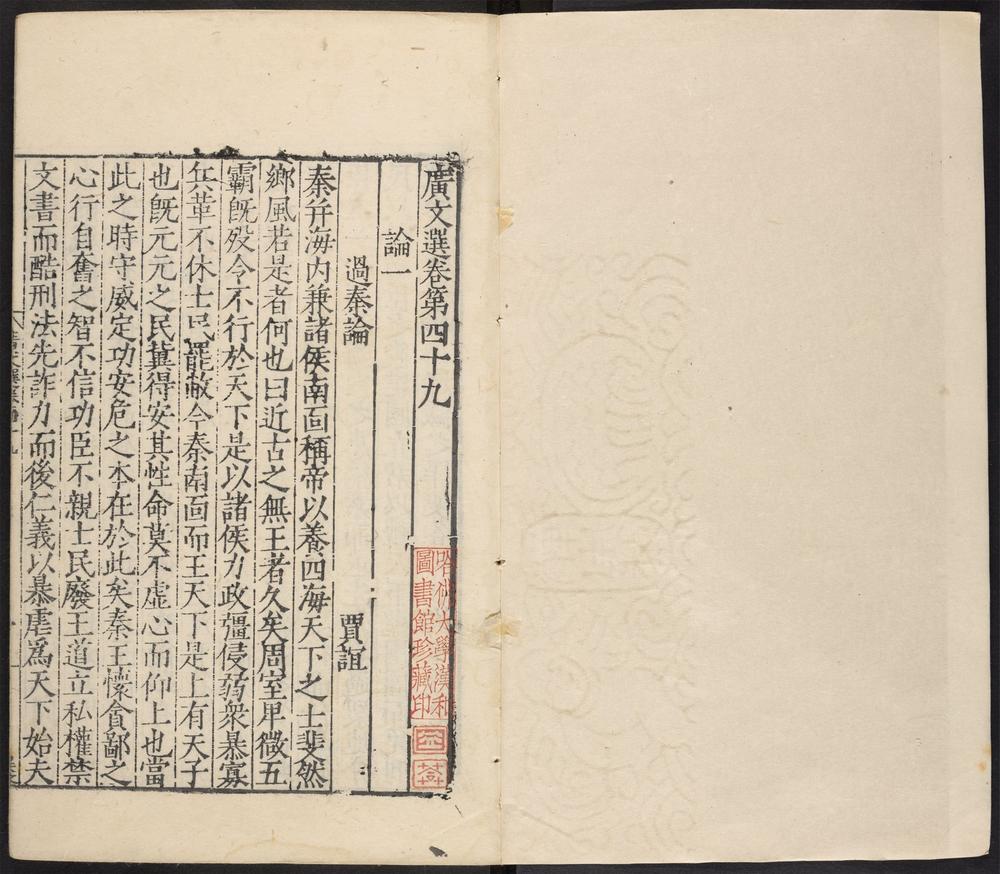 廣文選卷第四十九
論一
過秦論
賈誼
秦并海内兼諸侯南面稱帝以養四海天下之士斐然
鄉風若是者何也曰近古之無王者久矣周室卑微五
霸旣歿令不行於天下是以諸侯力政彊侵弱衆暴寡
兵革不休士民罷敝今秦南面而王天下是上有天子
也旣元元之民冀得安其性命莫不虛心而仰上也當
此之時守威定功安危之本在於此矣秦王懷貪鄙之
心行自奮之智不信功臣不親士民廢王道立私權禁
文書而酷刑法先詐力而後仁義以暴虐爲天下始夫
哈佛大學漢和
圖書館珍藏印